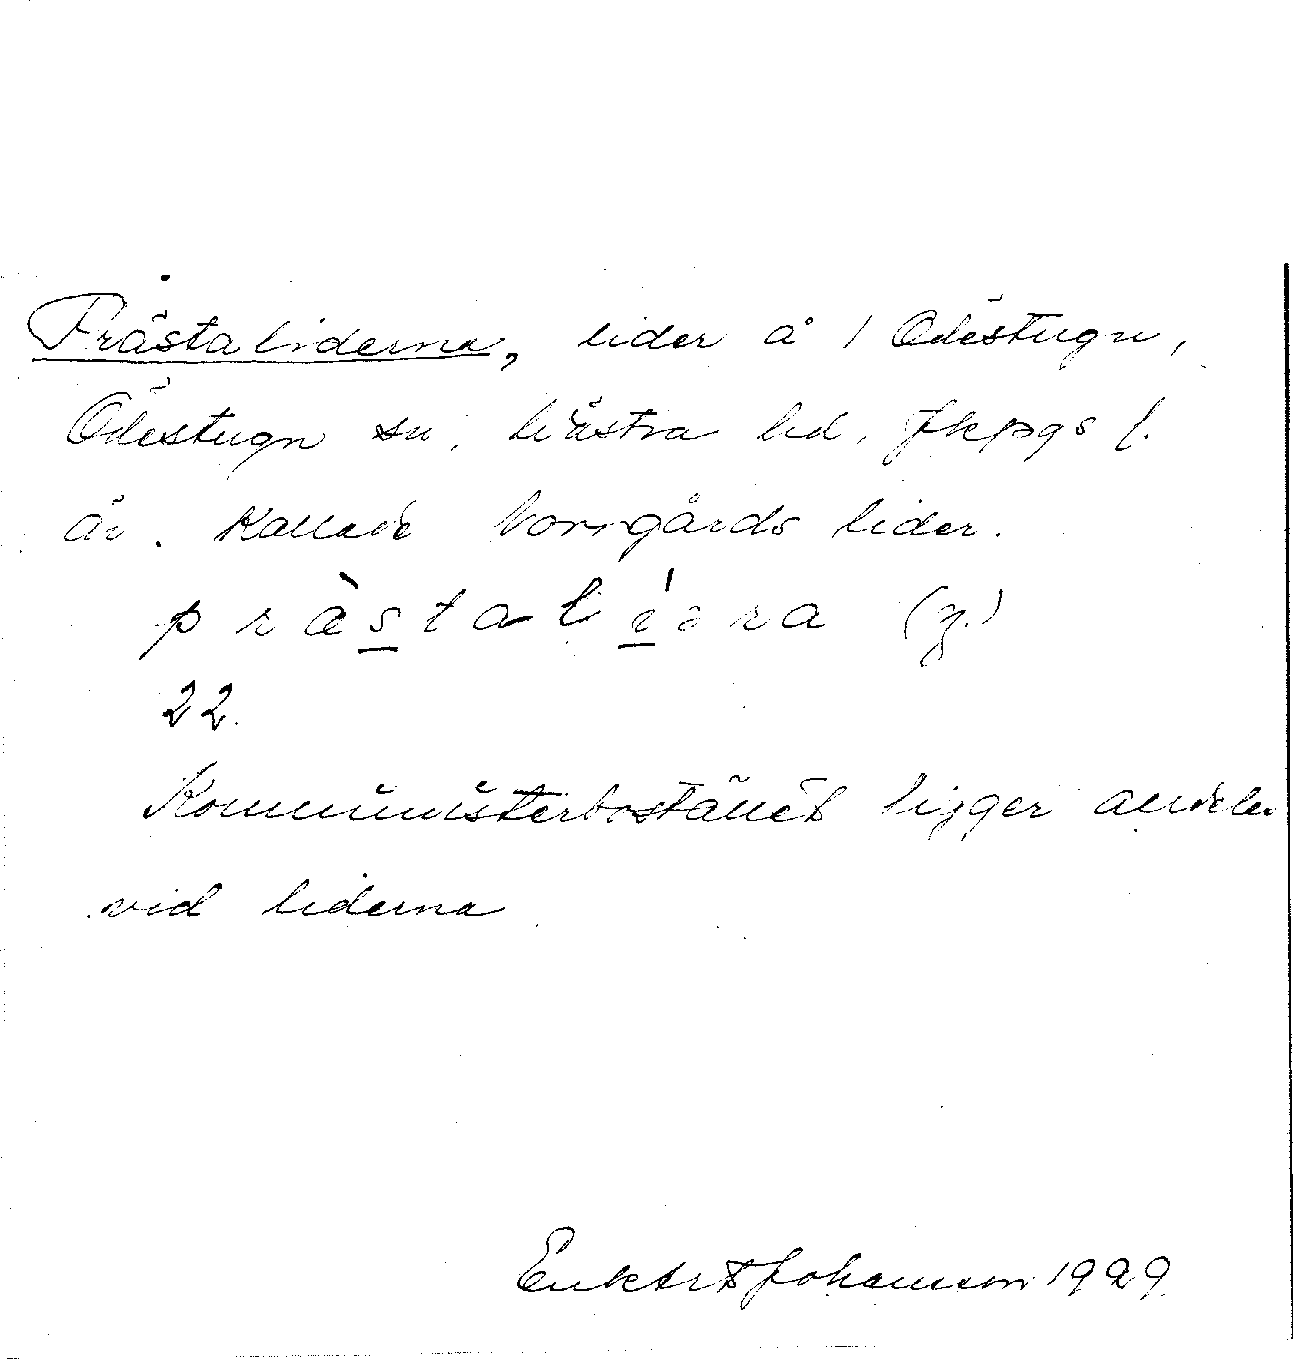 Prästaliderna, lider å 1 Ödestugu,
Ödestugu sn, Västra hd, Jkpgs l.
Äv. kallade Norrgårds lider.
prästali̱əra (y.)
22.
Komministerbostället ligger alldeles
vid liderna
Enl Johansson 1929